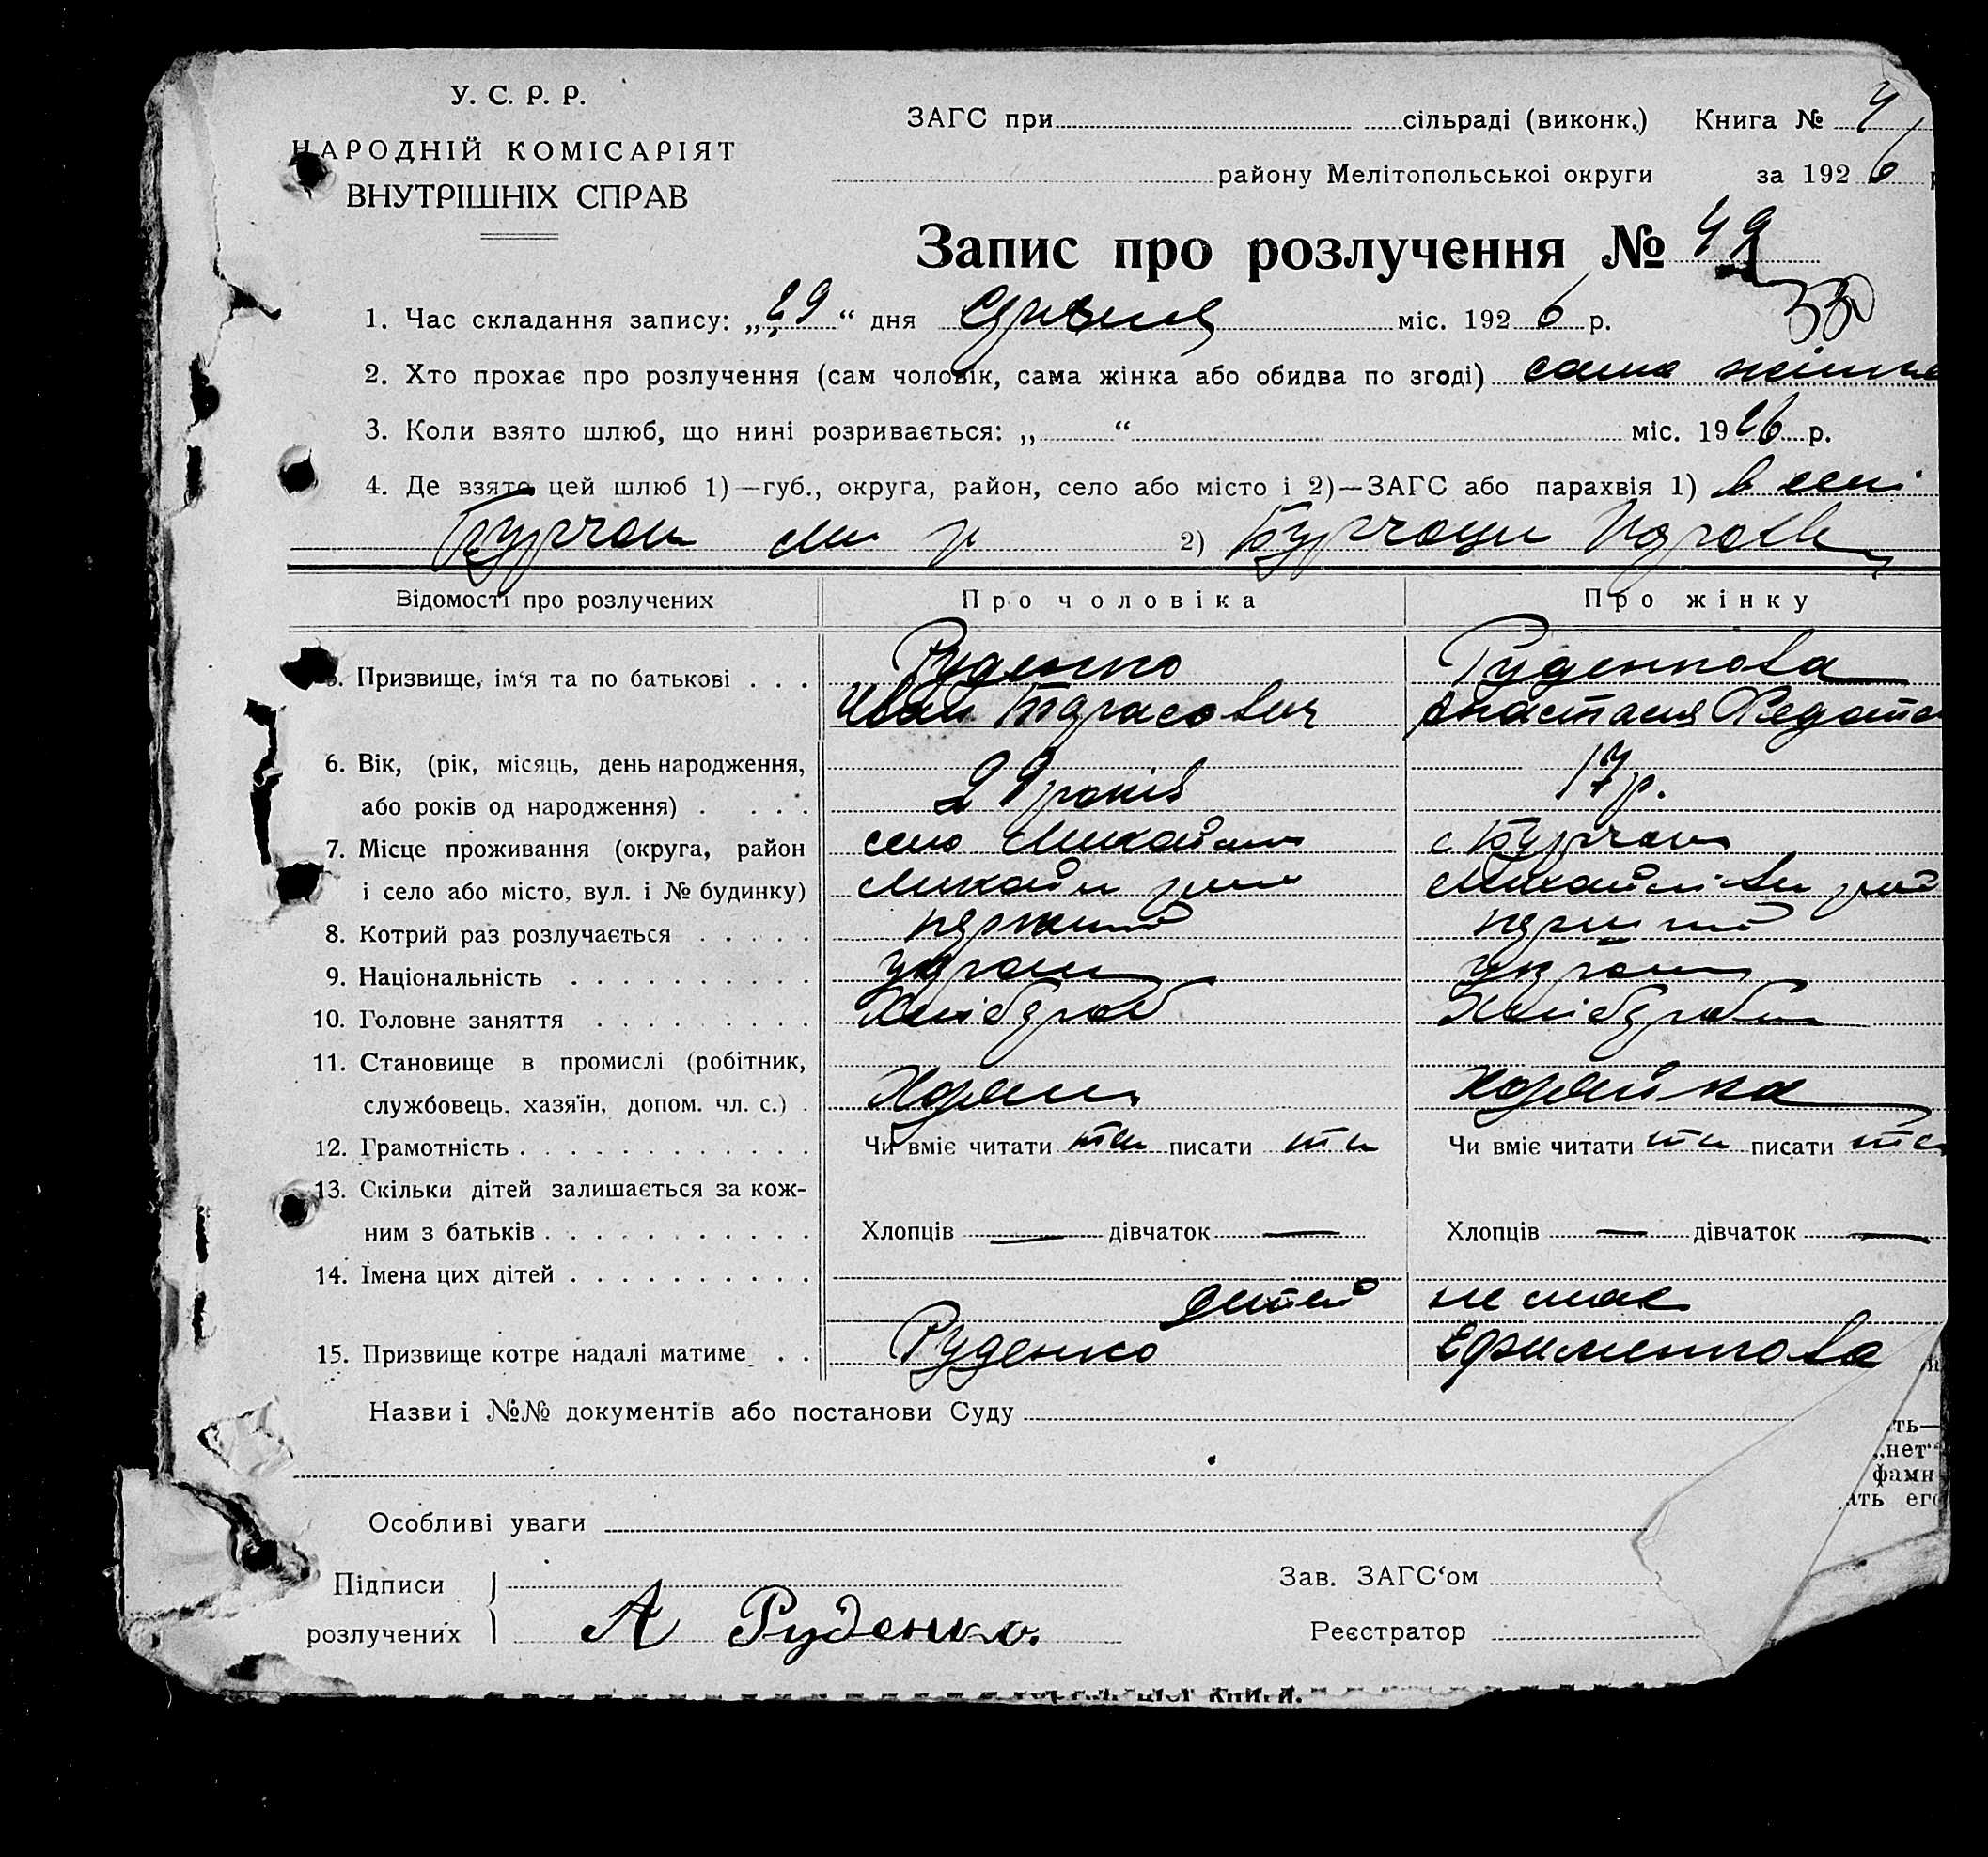 У. С. Р. Р.
НАРОДНІЙ КОМІСАРІЯТ
ВНУТРІШНІХ СПРАВ
ЗАГС при сільраді (виконк.) Книга №
району Мелітопольської округи за 1926
Запис про розлучення № 49
1. Час складання запису: „29“ дня міс. 1926 р.
2. Хто прохає про розлучення (сам чоловік, сама жінка або обидва по згоді) сама жінка
3. Коли взято шлюб, що нині розривається: „ “ міс. 1926 р.
4. Де взято цей шлюб 1)—губ., округа, район, село або місто і 2)—ЗАГС або парахвія 1) в селі
2)
Відомості про розлучених Про чоловіка Про жінку
5. Призвище, ім‘я та по батькові . . . Руденко Руденкова
Иван Тарасович Анастасия
6. Вік, (рік, місяць, день народження,
або років од народження) . . . . 29 років 17 р.
7. Місце проживання (округа, район село с
і село або місто, вул. і № будинку)
8. Котрий раз розлучається . . . . . перший перший
9. Національність . . . . . . . . . . украин украин
10. Головне заняття . . . . . . . . . Хлібороб
11. Становище в промислі (робітник,
службовець, хазяїн, допом. чл. с.) . Хозяин хозяйка
12. Грамотність . . . . . . . . . . . . Чи вміє читати писати Чи вміє читати писати
13. Скільки дітей залишається за кож-
ним з батьків . . . . . . . . . . . Хлопців — дівчаток — Хлопців — дівчаток —
14. Імена цих дітей . . . . . . . . . .
детей не мае
15. Призвище котре надалі матиме . . Руденко Ефименкова
Назви і №№ документів або постанови Суду
ть—
„нет“
фами
ать его
Особливі уваги
Підписи Зав. ЗАГС‘ом
розлучених А Руденко. Реєстратор
книги.